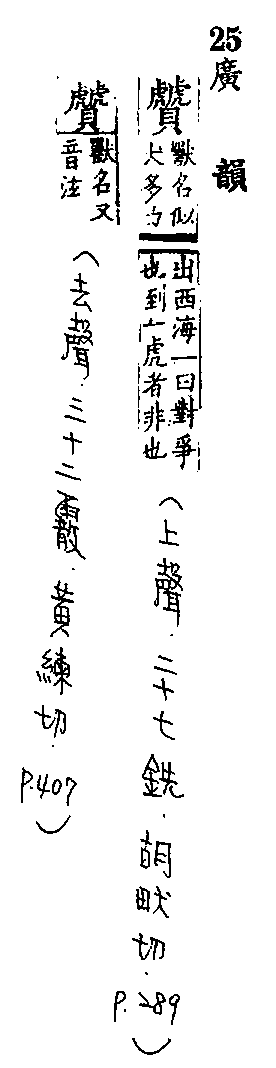 25
廣韻
贙
獸名似
犬多力
出西海一曰對爭
也到一虎者非也
(上聲.二十七銑.胡畎切.P.289)
贙
獸名又
音泫
(去聲.三十二霰.黃練切.P.407)